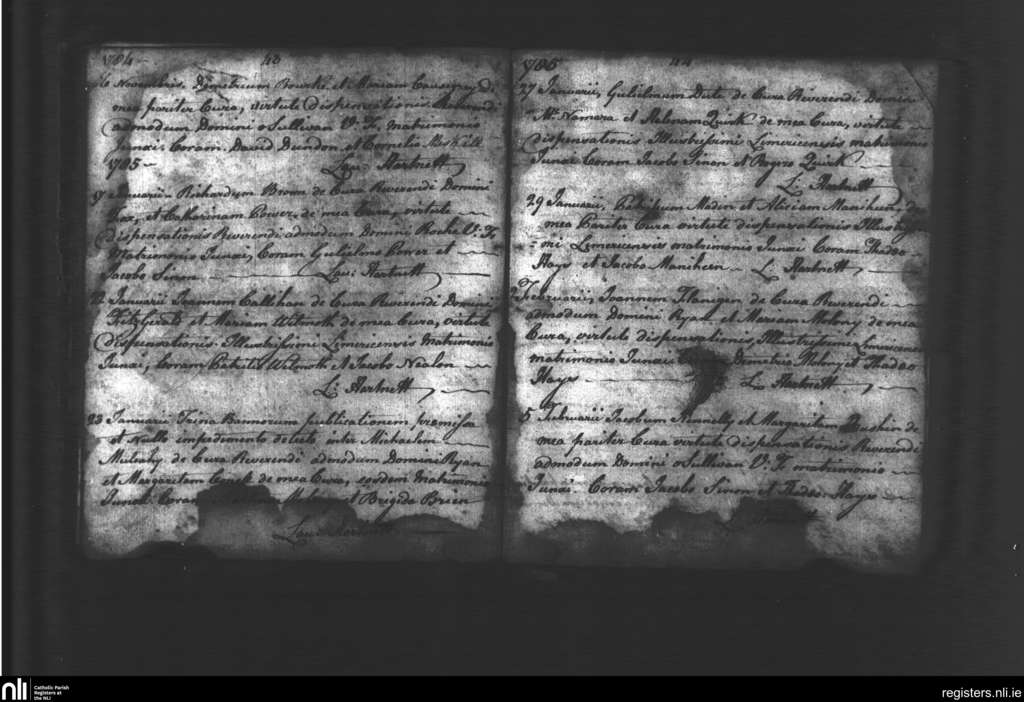 1784 - 43
6 Novembris. Demetrium Bourke et Mariam
mea pariter Cura, virtute dispensationis Reverendi
admodum Domini oSullivan V. F. matrimonio
Junxi. Coram David Dundon et Cornelio
1785 - Lau: Hartnett
Januarii Richardum Brown de Cura Reverendi Domini
et Catharinam Power de mea Cura, virtute
dispensationis Reverendi admodum Domini Roche V. F.
Matrimonio Junxi, Coram Gulielmo Power et
Jacobo Sinon Lau: Hartnett
22 Januarii Joannem Callihan de Cura Reverendi Domini
FitzGerald et Mariam Wilmoth de mea Cura, virtute
dispensationis Illustrissimi Limericensis Matrimonio
Junxi, Coram Wilmoth et Jacobo Nealon
L: Hartnett
23 Januarii Trina Bannorum publicatione premissa
et Nullo impedimento detecto inter Michaelem
Mulcahy de Cura Reverendi admodum Domini Ryan
et Margaritam de mea Cura, eosdem Matrimonio
Junxi Coram et Brigida Brien
Lau: Hartnett
1785 44
27 Januarii, Gulielmum de Cura Reverendi Domini
McNamara et Helenam Quirk de mea Cura, virtute
dispensationis Illustrissimi Limericensis matrimonio
Junxi Coram Jacobo Sinon et Quirk
L: Hartnett
29 Januarii, et Mariam Manihan de
mea Pariter Cura virtute dispensationis Illustrissi-
mi Limericensis matrimonio Junxi Coram Thadeo
Hays et Jacobo Maniheen L Hartnett
Februarii, Joannem Flanigan de Cura Reverendi
admodum Domini Ryan et Mariam Molony de mea
Cura, virtute dispensationis, Illustrissimi Limericensis
matrimonio Junxi Demetrio Molony et Thadeo
Hays L Hartnett
5 Februarii Jacobum et Margaritam de
mea pariter Cura virtute dispensationis Reverendi
admodum Domini oSullivan V. F. matrimonio
Junxi. Coram Jacobo Sinon et Thadeo Hays
nli Catholic Parish
Registers at
the NLI
registers.nli.ie